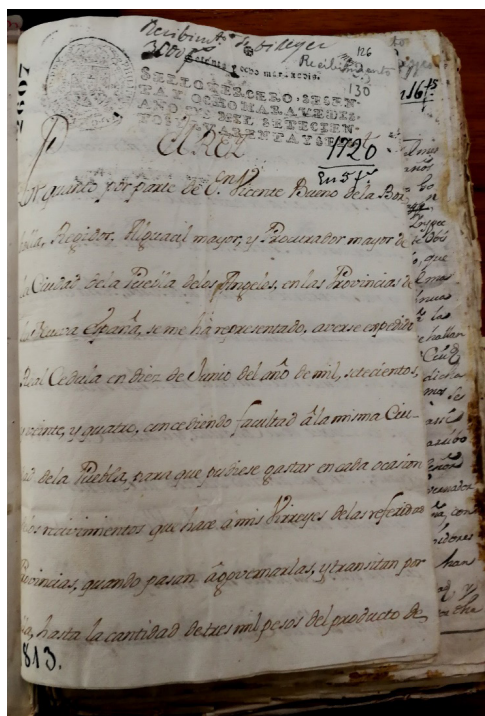 Recibimto de Virreyes
3000 ps
126
Recibimiento
Sesenta y ocho maravedis.
130
SELLO TERCERO, SESEN-
TA Y OCHO MARAVEDIS,
AÑO DE MIL SETECIEN-
TOS Y QUARENTA Y SE
EL REY
1720
En 5 fs
Por quanto por parte de Dn Vicente Bueno de la Bor-
bolla, Regidor, Alguacil mayor, y Procurador mayor de
la Ciudad de la Puebla de los Angeles, en las Provincias de
la Nueva España, se me ha representado, averse expedido
Real Cedula en diez de Junio del año de mil, setecientos,
y veinte, y quatro, concediendo facultad â la misma Ciu-
dad de la Puebla, para que pudiese gastar en cada ocasion
de los recivimientos que hace a mis Virreyes de las referidas
Provincias, quando pasan â governarlas, y transitan por
ella, hasta la cantidad de tres mil pesos del producto de
813.